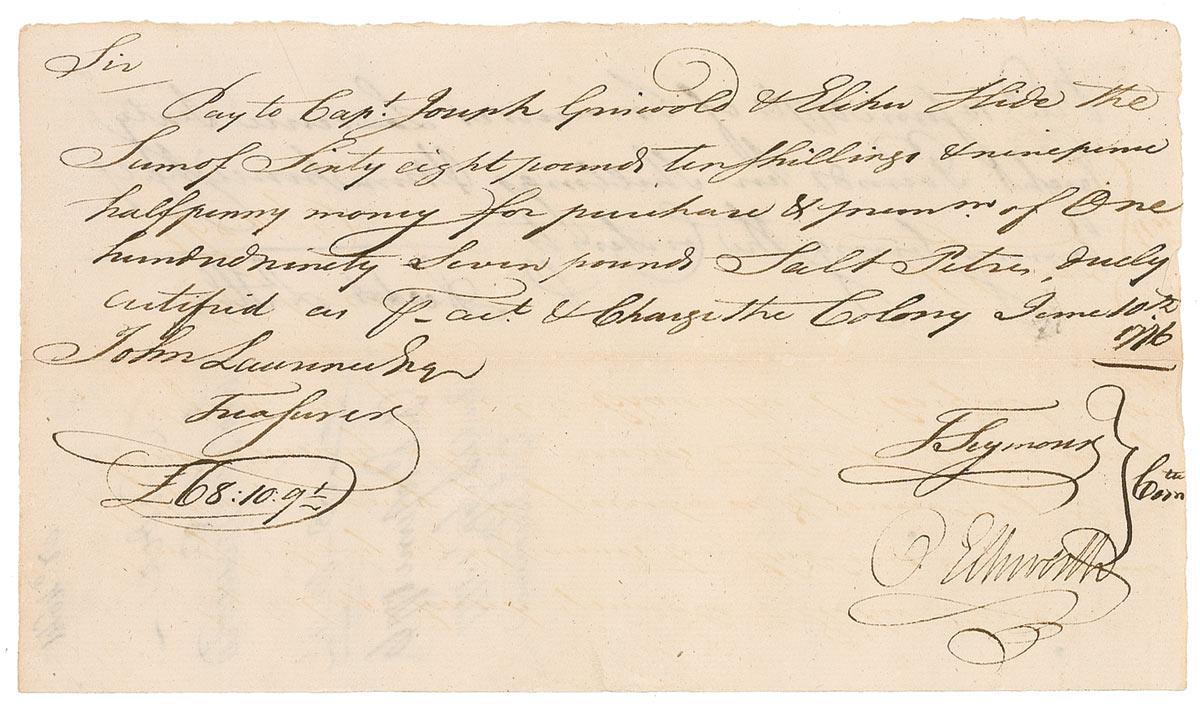 Sir
Pay to Capt. Joseph Griswold & Elihu Hide the
Sum of Sixty eight pounds ten shillings & ninepence
halfpenny money for purchase & premm. of One
hundred ninety Seven pounds Salt Petre, duely
certified as P act. & Charge the Colony June 10th
1776
John Lawrence Esqr
Treasurer
£68:10:9½
T Seymour
Comtee
O Ellsworth